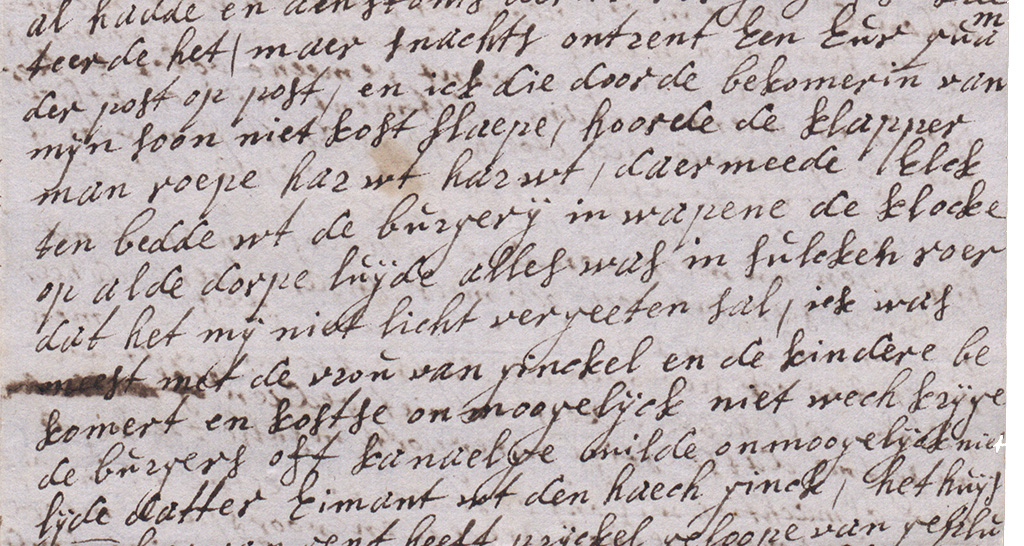 al hadde en
teerde het / maer snachts ontrent een eur qua
m
der post op post / en ick die door de bekomerin van
mijn soon niet kost slaepe / hoorde de klapper
man roepe harwt harwt / daermeede elck
ten bedde wt de burgery in wapene de klocke
op alde dorpe luyde alles was in sulcken roer
dat het my niet licht vergeeten sal / ick was
meest met de vrou van ginckel en de kindere be
komert en kostse onmoogelijck niet wech kryge
de burgers off kanaelge wilde onmoogelijck niet
lyde datter eimant wt den haech ginck / het huys
heeft geloope van